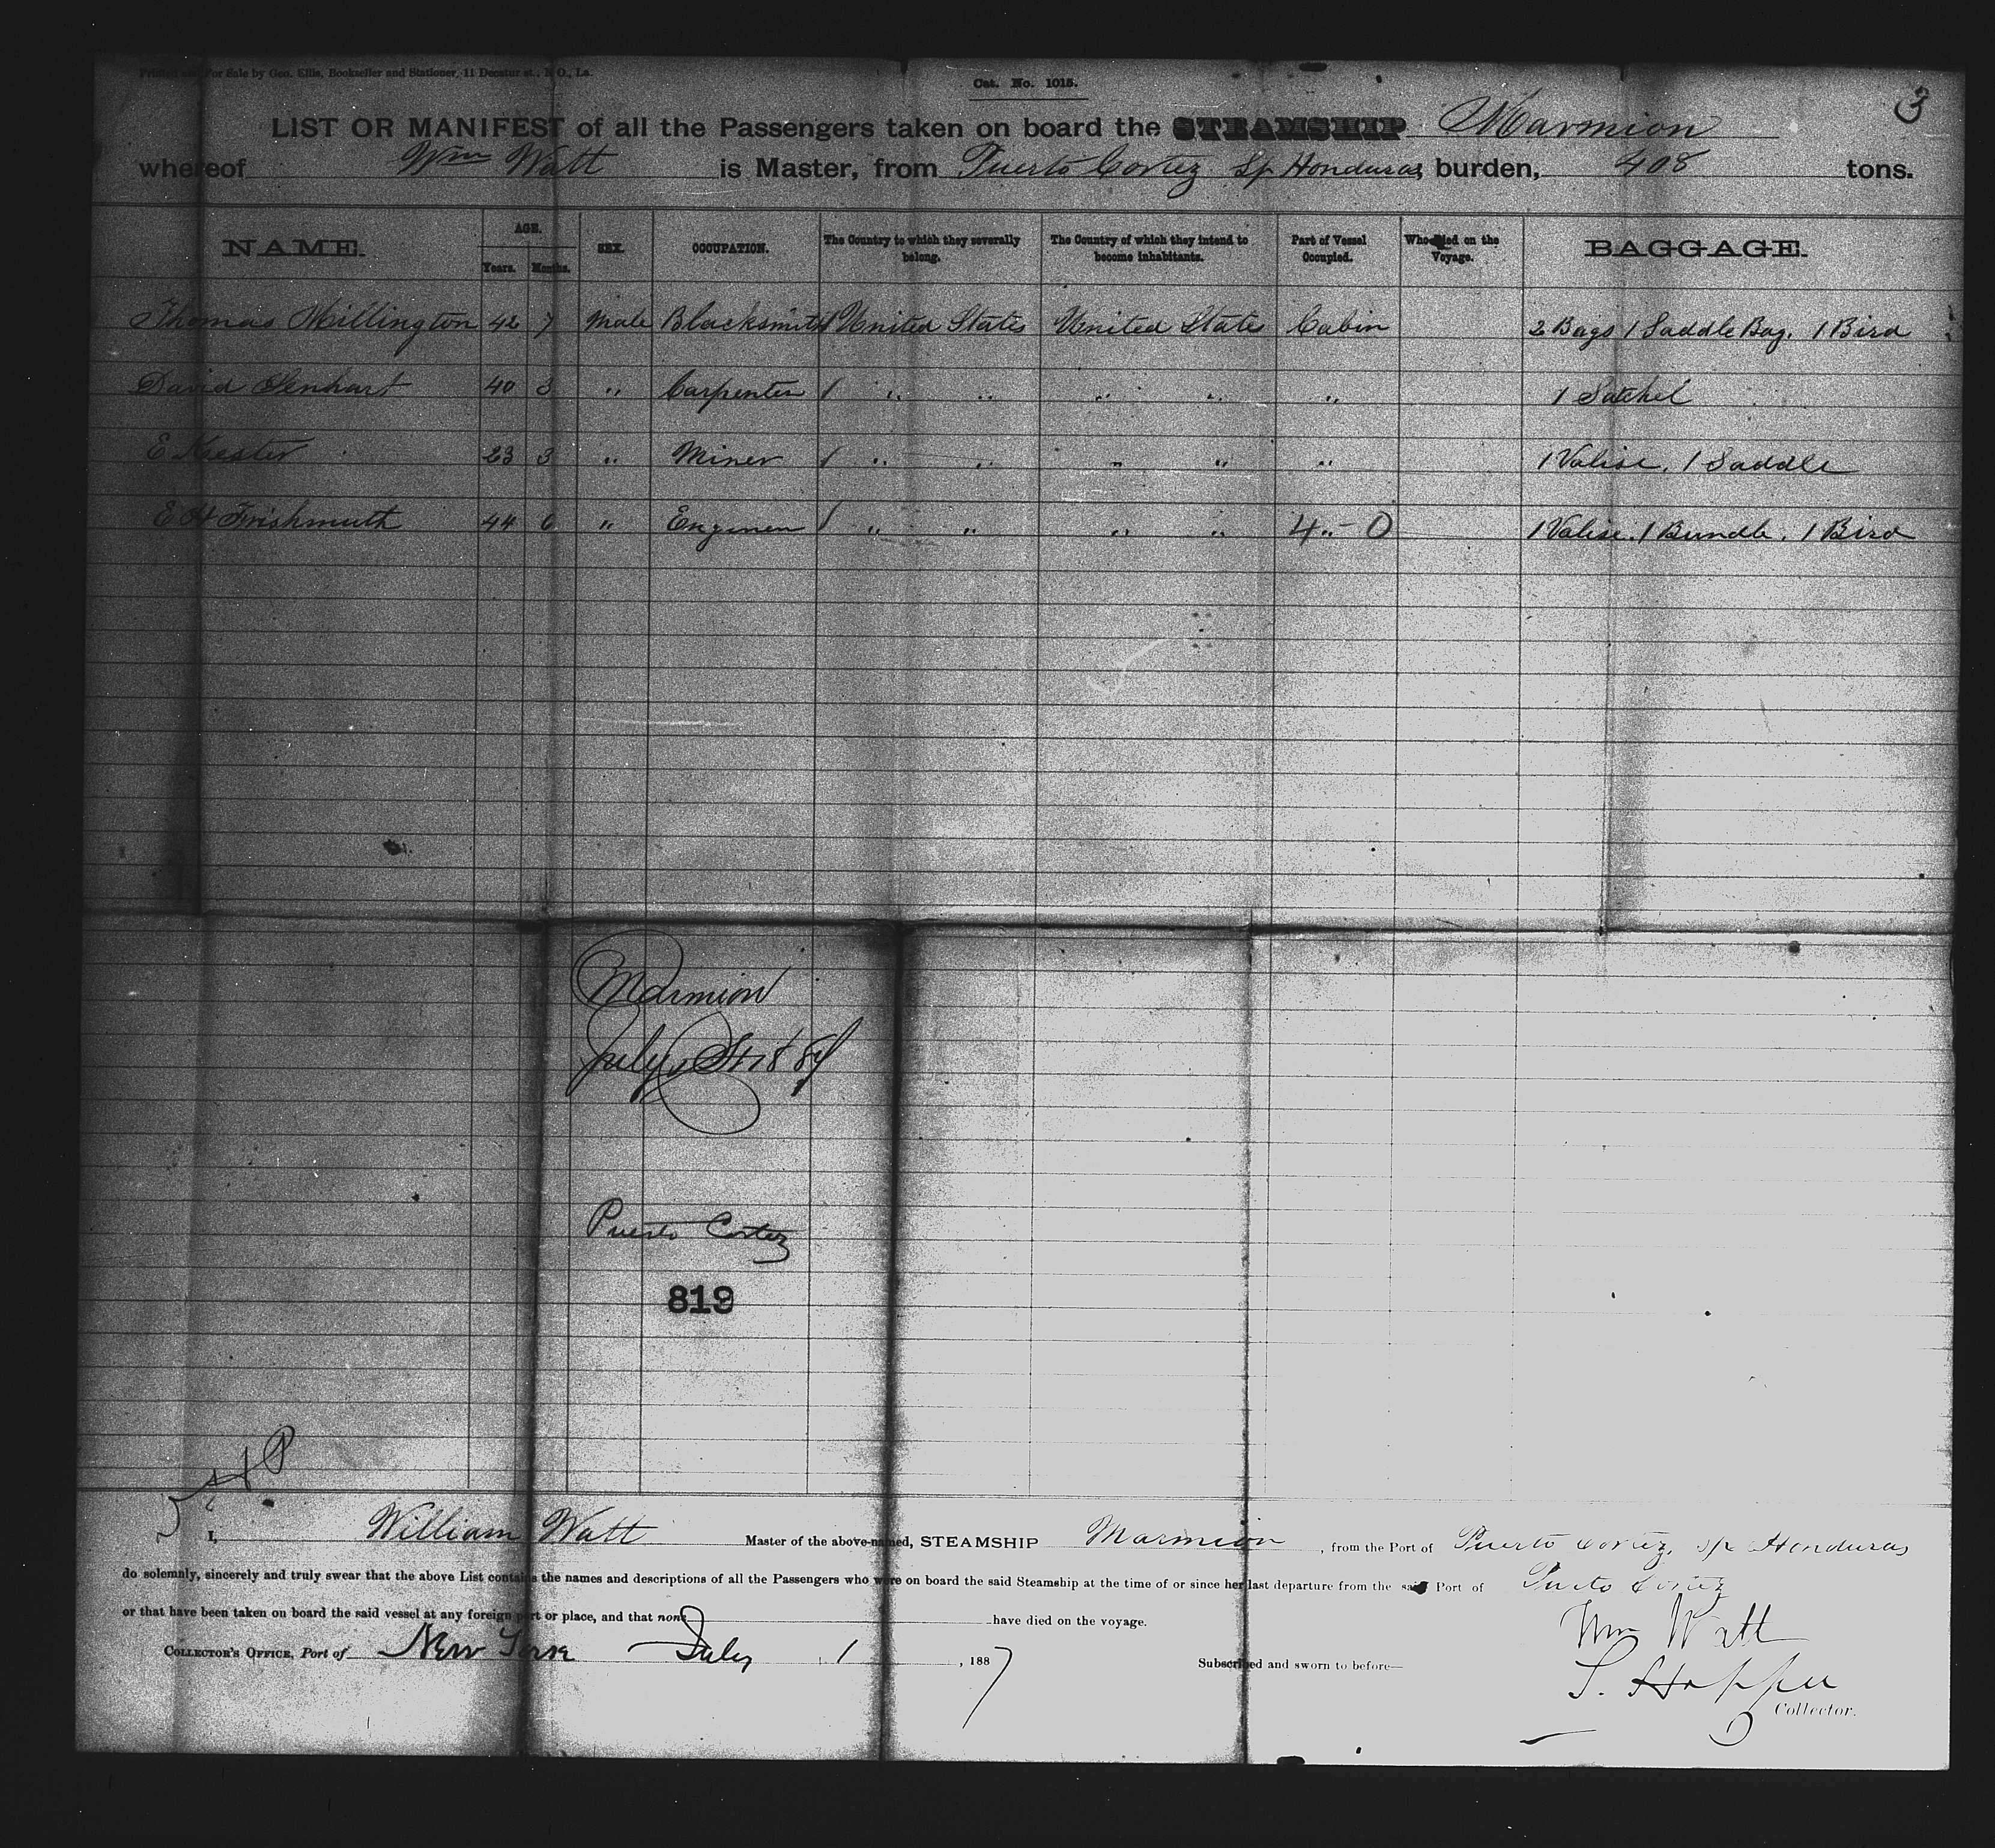 Printed and For Sale by Geo. Ellis, Bookseller and Stationer, 11 Decatur st., N.O., La.
Cat. No. 1015.
3
LIST OR MANIFEST of all the Passengers taken on board the STEAMSHIP Marmion
whereof Wm Watt is Master, from Puerto Cortez Sp Honduras, burden, 408 tons.
NAME. AGE. Years. Months. SEX. OCCUPATION. The Country to which they severally belong. The Country of which they intend to become inhabitants. Part of Vessel Occupied. Who died on the Voyage. BAGGAGE.
Thomas Millington 42 7 Male Blacksmith 1 United States United States Cabin 2 Bags 1 Saddle Bag. 1 Bird
David 40 3 " Carpenter 1 " " " " " 1 Satchel
E 23 3 " Miner 1 " " " " " 1 Valise. 1 Saddle
E H Frishmuth 44 6 " 1 " " " " 4 " - 0 1 Valise. 1 Bundle. 1 Bird
Marmion
July 1St 1887
Puerto Cortez
819
I, William Watt Master of the above-named, STEAMSHIP Marmion, from the Port of Puerto Cortez, Sp Honduras
do solemnly, sincerely and truly swear that the above List contains the names and descriptions of all the Passengers who were on board the said Steamship at the time of or since her last departure from the said Port of Puerto Cortez
or that have been taken on board the said vessel at any foreign port or place, and that none have died on the voyage.
Wm Watt
COLLECTOR'S OFFICE, Port of New York July 1, 1887
Subscribed and sworn to before—
Collector.